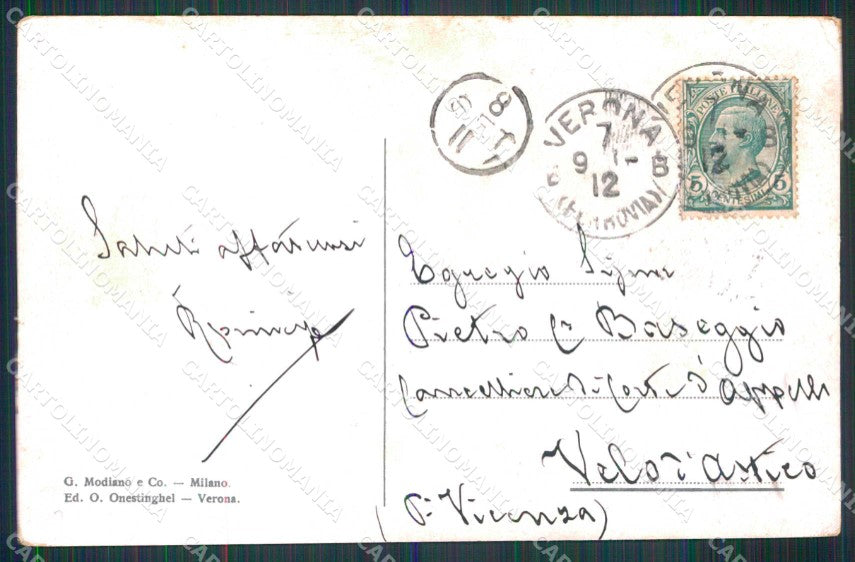 Saluti affettuosi
G. Modiano e Co. — Milano.
Ed. O. Onestinghel — Verona.
8
11
VERONA
7
9 1-
12
B B
(FERROVIA)
POSTE ITALIANE
5 5
CENTESIMI
12
Egregio Sigre
Pietro Baseggio
Cancelliere di Corte d'Appello
Velo d'Astico
(Pr Vicenza)
CARTOLINOMANIA